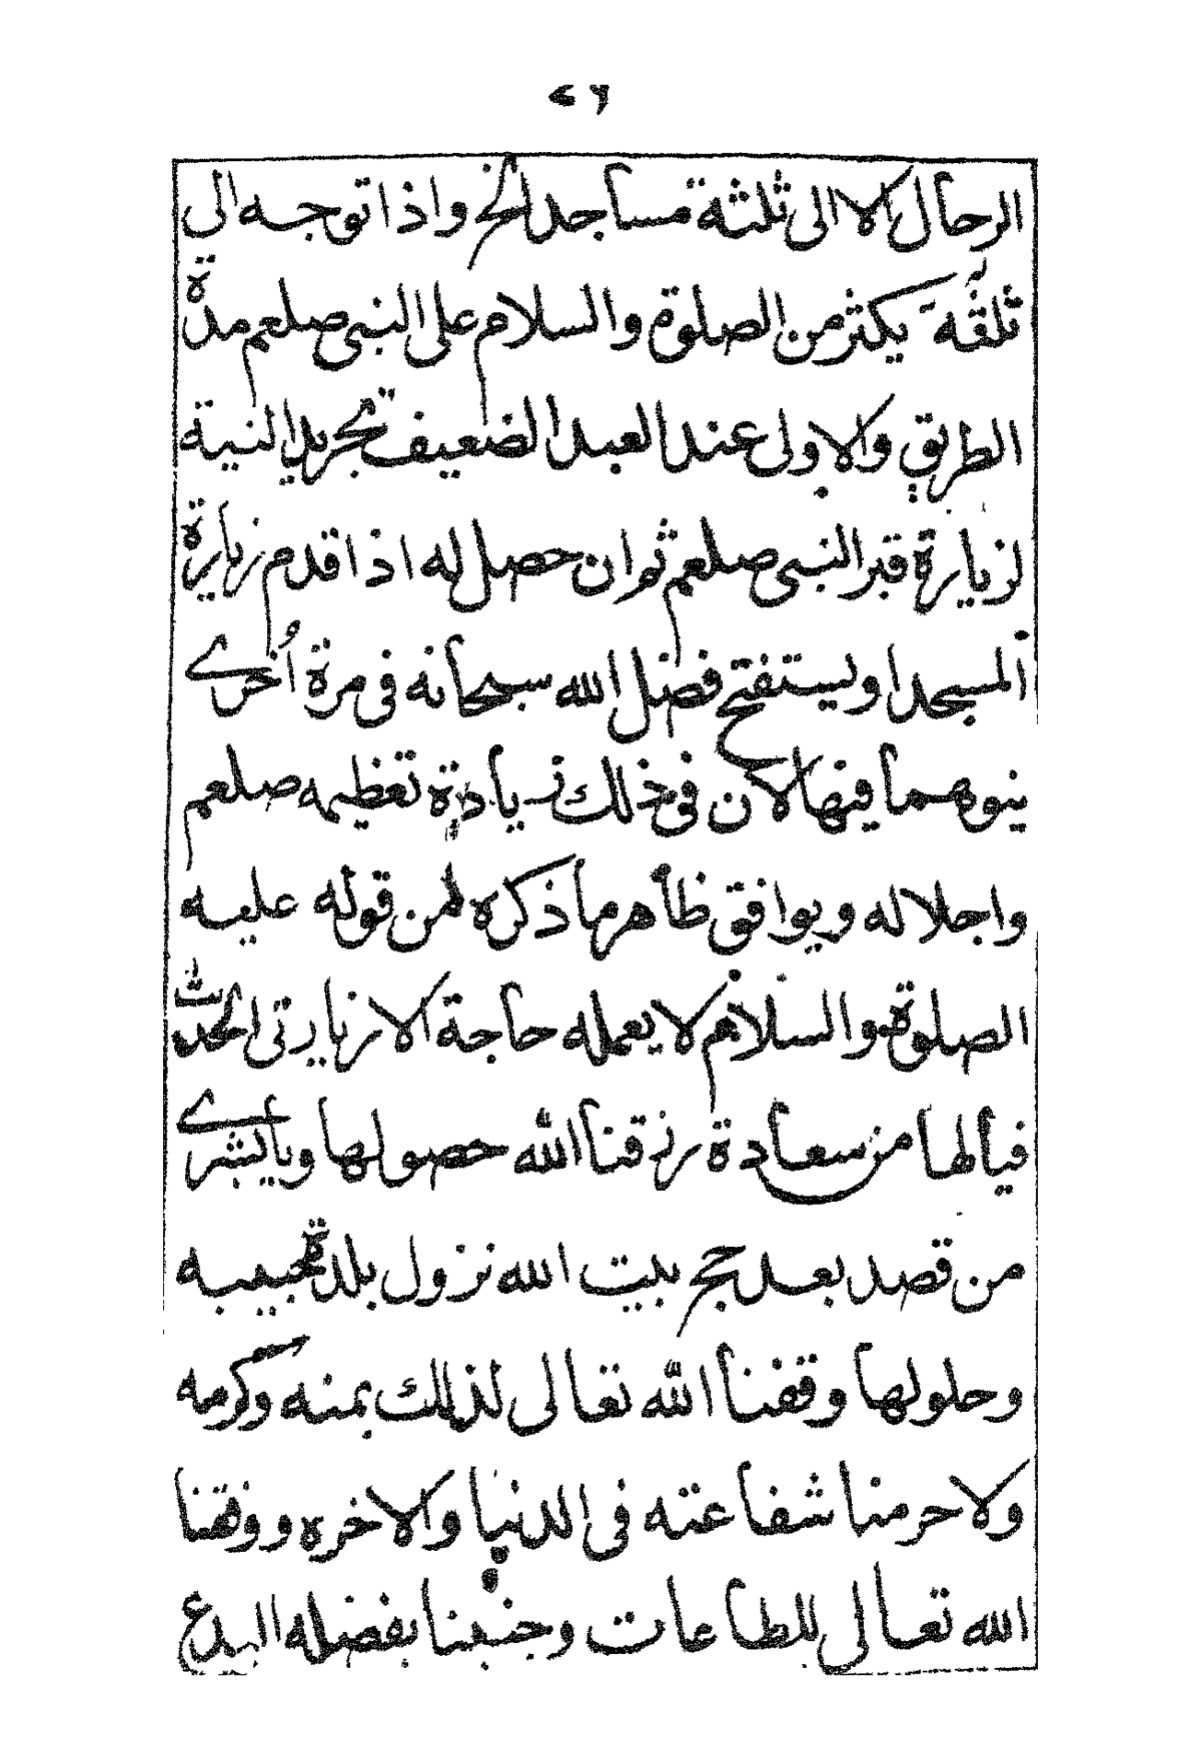 ٧٦
الرحال الا الى ثلثة مساجد الخ واذا توجه الى
يكثر من الصلوة والسلام على النبى صلعم مدة
الطريق والاولى عند العبد الضعيف تجريد النية
لزيارة قبر النبى صلعم ثم ان حصل له اذا قدم زيارة
المسجد او ليستفتح فضل الله سبحانه فى مرة اُخرے
ينوهما فيها لان فى ذلك زيادة تعظيمه صلعم
واجلاله ويوافق ظاهر ما ذكره من قوله عليه
الصلوة والسلام لا يعمله حاجة الا زيارتى الحديث
فيا لها من سعادة رزقنا الله حصولها ويا بشرے
من قصد بعد حج بيت الله نزول بلدة حبيبه
وحلولها وفقنا الله تعالى لذلك بمنه وكرمه
ولا حرمنا شفاعته فى الدنيا والاخره ووفقنا
الله تعالى للطاعات وجنبنا بفضله البدع